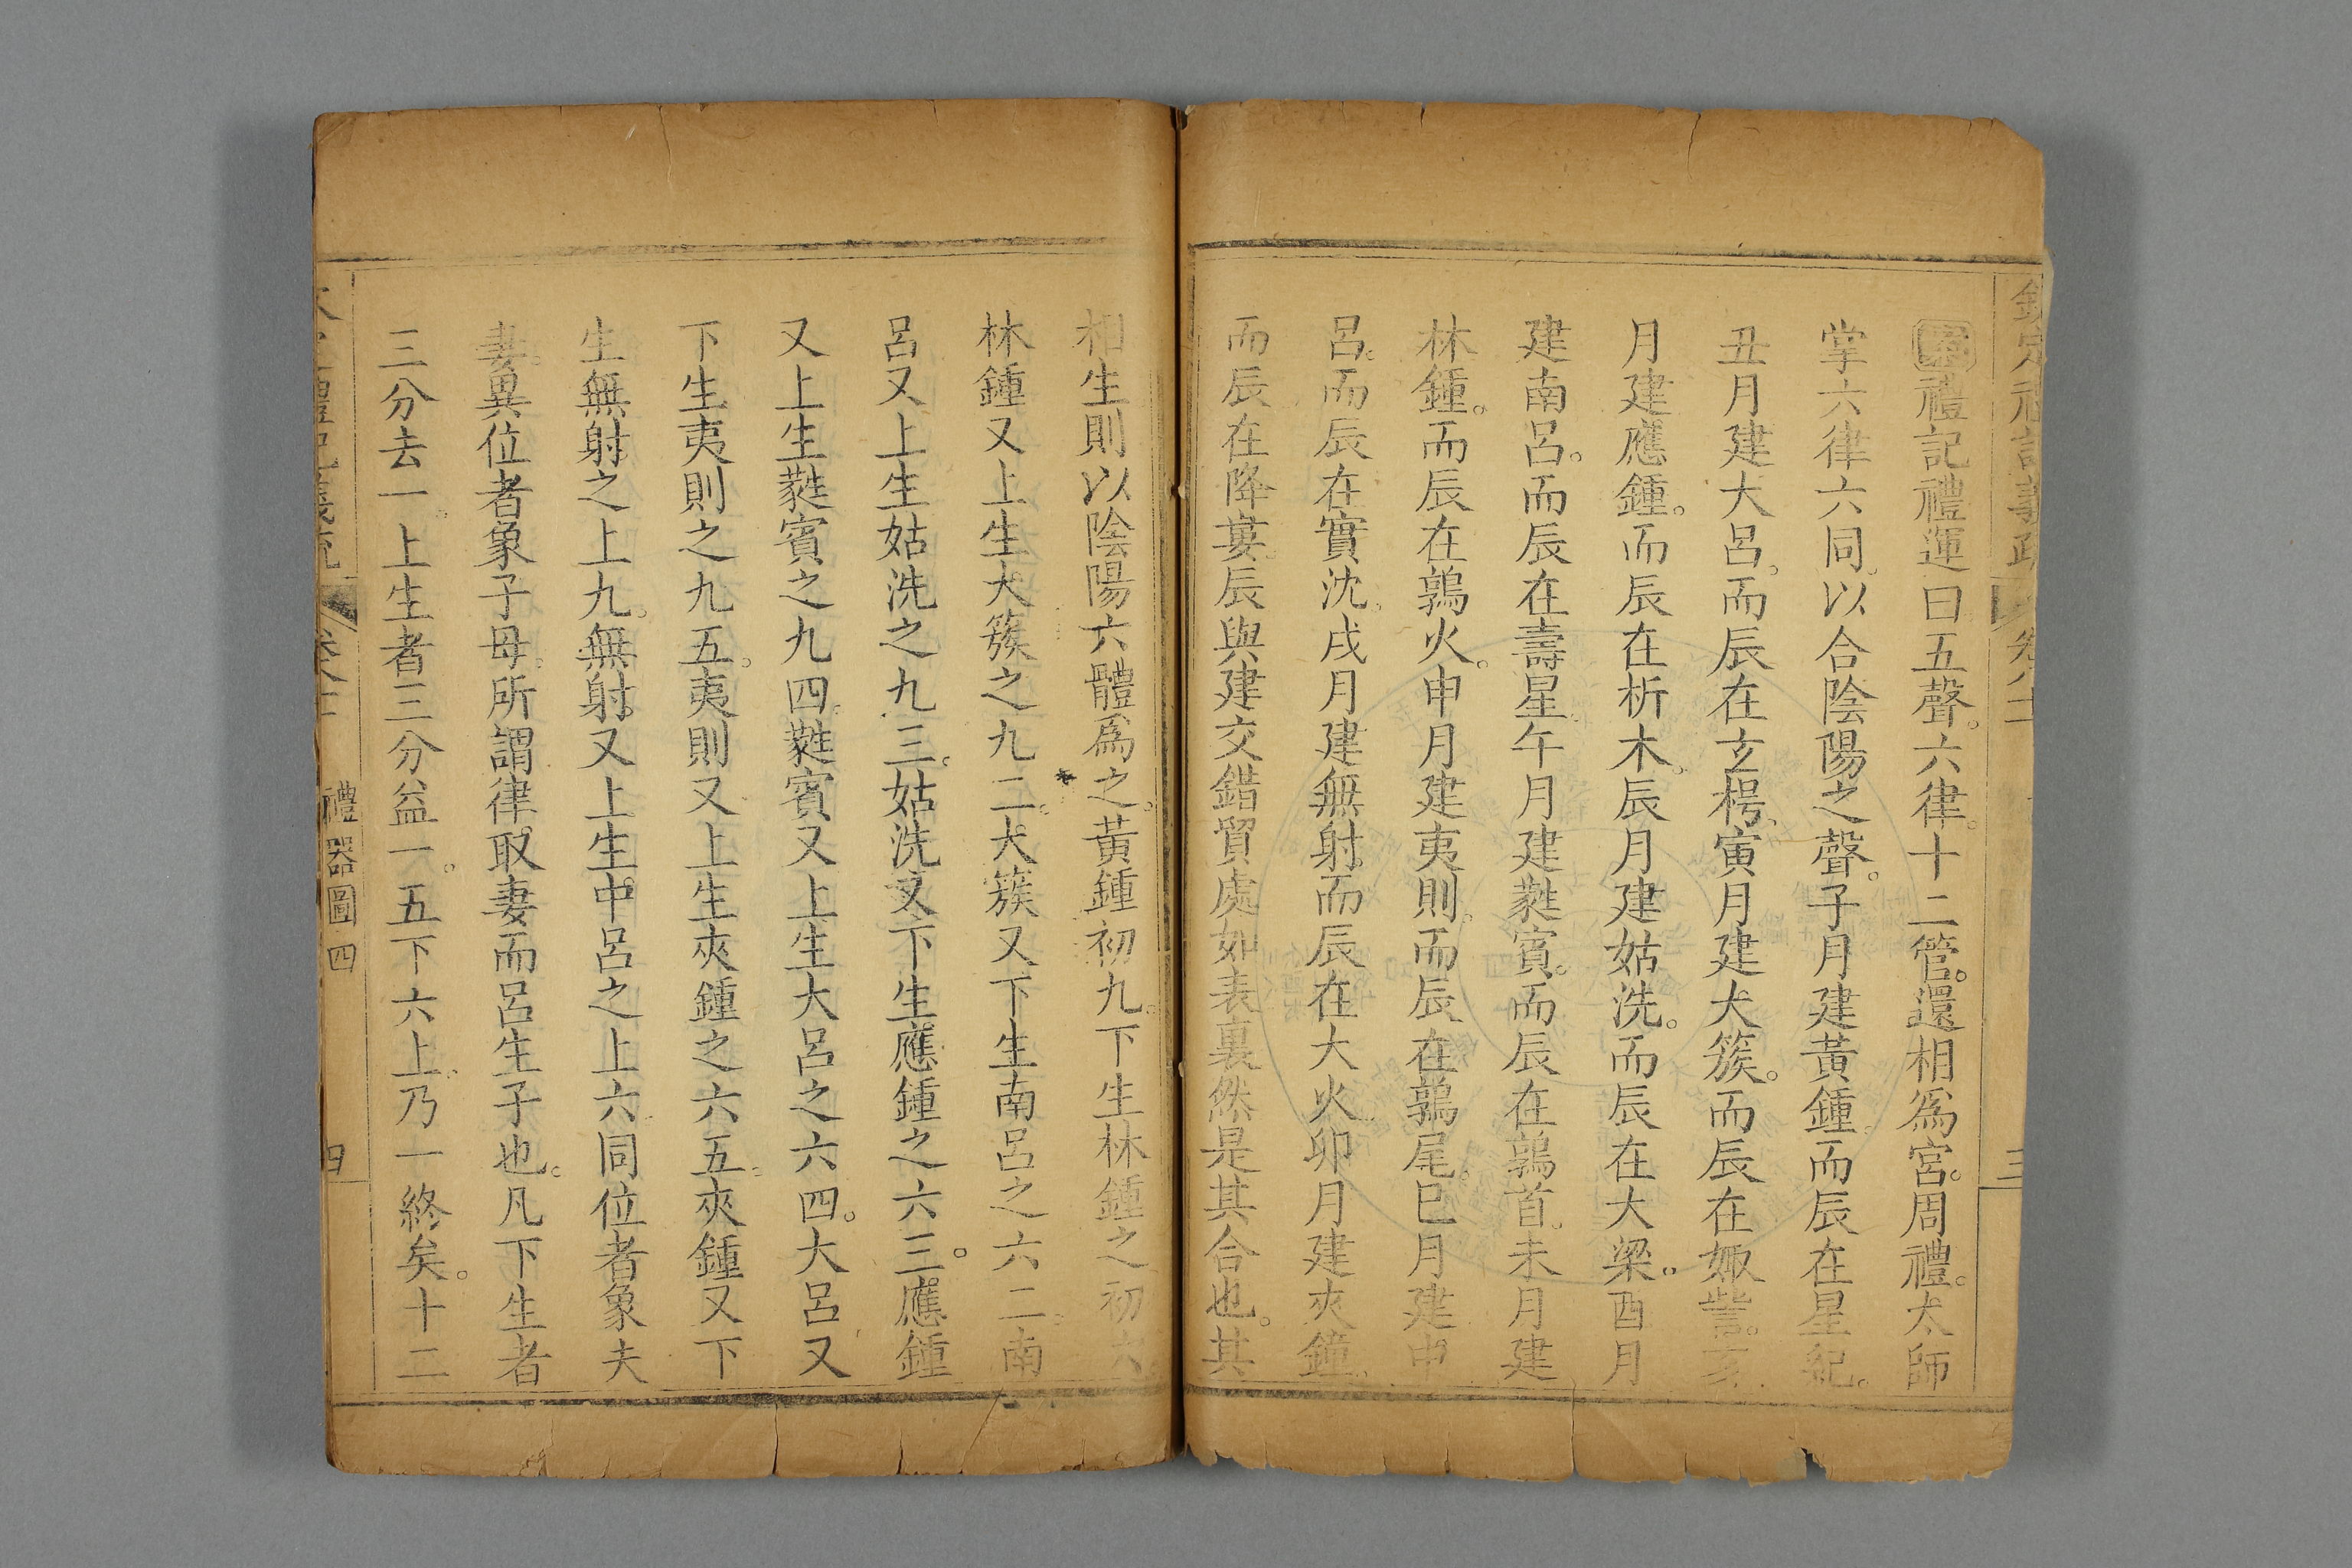 欽定禮記義疏 卷八十二 三
禮記禮運曰五聲。六律。十二管。還相爲宮。周禮。大師
掌六律六同。以合陰陽之聲。子月建黃鍾。而辰在星紀。
丑月建大呂。而辰在玄枵。寅月建大簇。而辰在娵訾。亥
月建應鍾。而辰在析木。辰月建姑洗。而辰在大梁。酉月
建南呂。而辰在壽星。午月建蕤賓。而辰在鶉首。未月建
林鍾。而辰在鶉火。申月建夷則。而辰在鶉尾。巳月建中
呂。而辰在實沈。戌月建無射。而辰在大火。卯月建夾鐘。
而辰在降婁。辰與建交錯貿處。如表裏然。是其合也。其
相生則以陰陽六體爲之。黃鍾初九。下生林鍾之初六。
林鍾又上生大簇之九二。大簇又下生南呂之六二。南
呂又上生姑洗之九三。姑洗又下生應鍾之六三。應鍾
又上生蕤賓之九四。蕤賓又上生大呂之六四。大呂又
下生夷則之九五。夷則又上生夾鍾之六五。夾鍾又下
生無射之上九。無射又上生中呂之上六。同位者象夫
妻。異位者象子母。所謂律取妻而呂生子也。凡下生者
三分去一。上生者三分益一。五下六上。乃一終矣。十二
禮記義疏 卷 禮器圖四 四